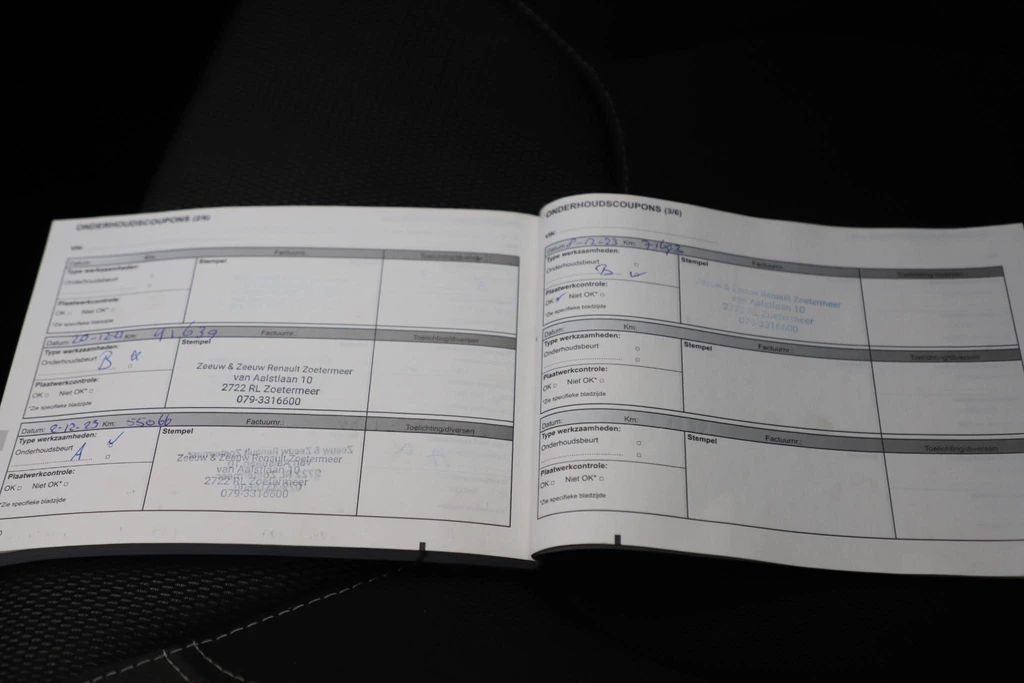 ONDERHOUDSCOUPONS (2/6)
VIN:
Datum: Km: Factuurnr.: Toelichting/diversen
Type werkzaamheden: Stempel
Onderhoudsbeurt
Plaatwerkcontrole:
OK Niet OK*
*Zie specifieke bladzijde
Datum: Km: 41639 Factuurnr.: Toelichting/diversen
Type werkzaamheden: Stempel
Onderhoudsbeurt B
Zeeuw & Zeeuw Renault Zoetermeer
van Aalstlaan 10
2722 RL Zoetermeer
079-3316600
Plaatwerkcontrole:
OK Niet OK*
*Zie specifieke bladzijde
Datum: Km: 55066 Factuurnr.: Toelichting/diversen
Type werkzaamheden: Stempel
Onderhoudsbeurt A
Zeeuw & Zeeuw Renault Zoetermeer
van Aalstlaan 10
2722 RL Zoetermeer
079-3316600
Plaatwerkcontrole:
OK Niet OK*
*Zie specifieke bladzijde
ONDERHOUDSCOUPONS (3/6)
VIN:
Datum: Km: Factuurnr.: Toelichting/diversen
Type werkzaamheden: Stempel
Onderhoudsbeurt B
Zeeuw & Zeeuw Renault Zoetermeer
van Aalstlaan 10
2722 RL Zoetermeer
079-3316600
Plaatwerkcontrole:
OK Niet OK*
*Zie specifieke bladzijde
Datum: Km: Factuurnr.: Toelichting/diversen
Type werkzaamheden: Stempel
Onderhoudsbeurt
Plaatwerkcontrole:
OK Niet OK*
*Zie specifieke bladzijde
Datum: Km: Factuurnr.: Toelichting/diversen
Type werkzaamheden: Stempel
Onderhoudsbeurt
Plaatwerkcontrole:
OK Niet OK*
*Zie specifieke bladzijde